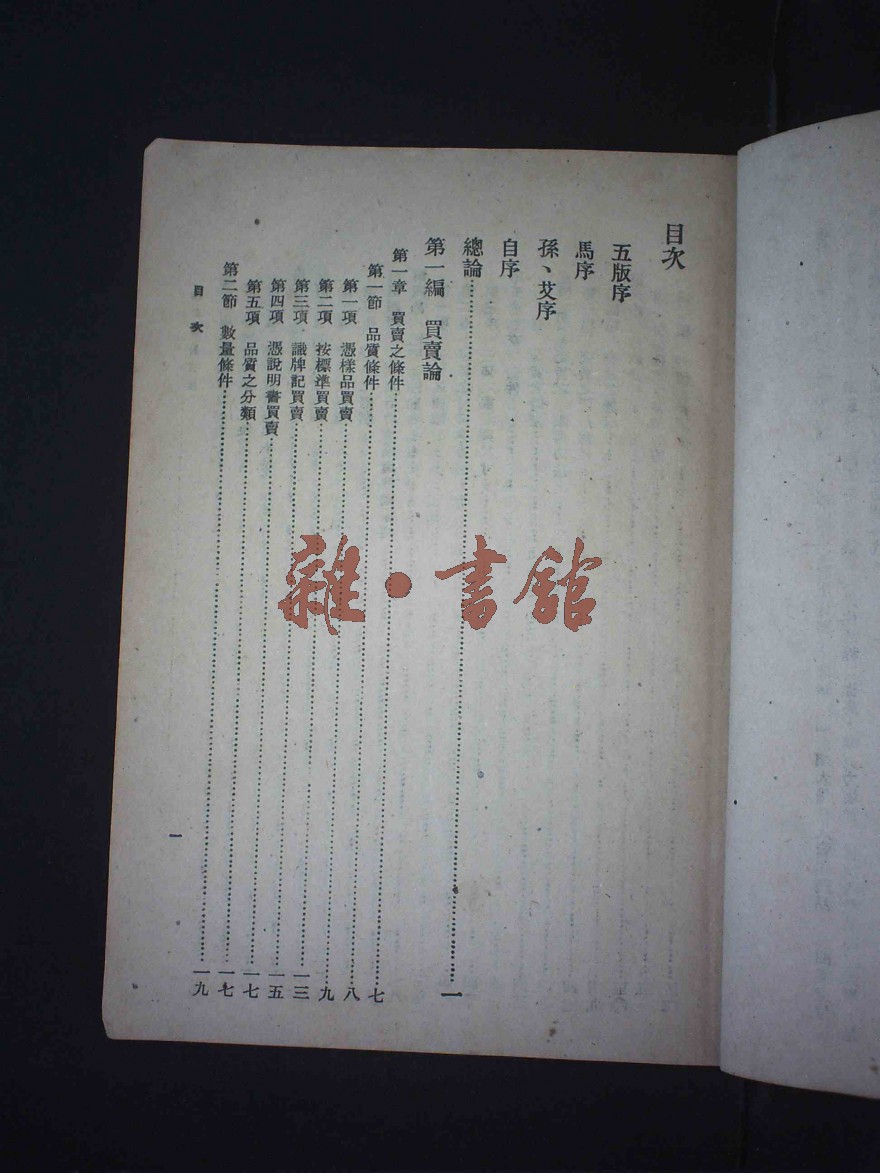 目次
五版序
馬序
孫、艾序
自序
總論……一
第一編　買賣論
第一章　買賣之條件……七
第一節　品質條件……八
第一項　憑樣品買賣……九
第二項　按標準買賣……一三
第三項　識牌記買賣……一五
第四項　憑說明書買賣……一七
第五項　品質之分類……一七
第二節　數量條件……一九
目次
一
雜·書館